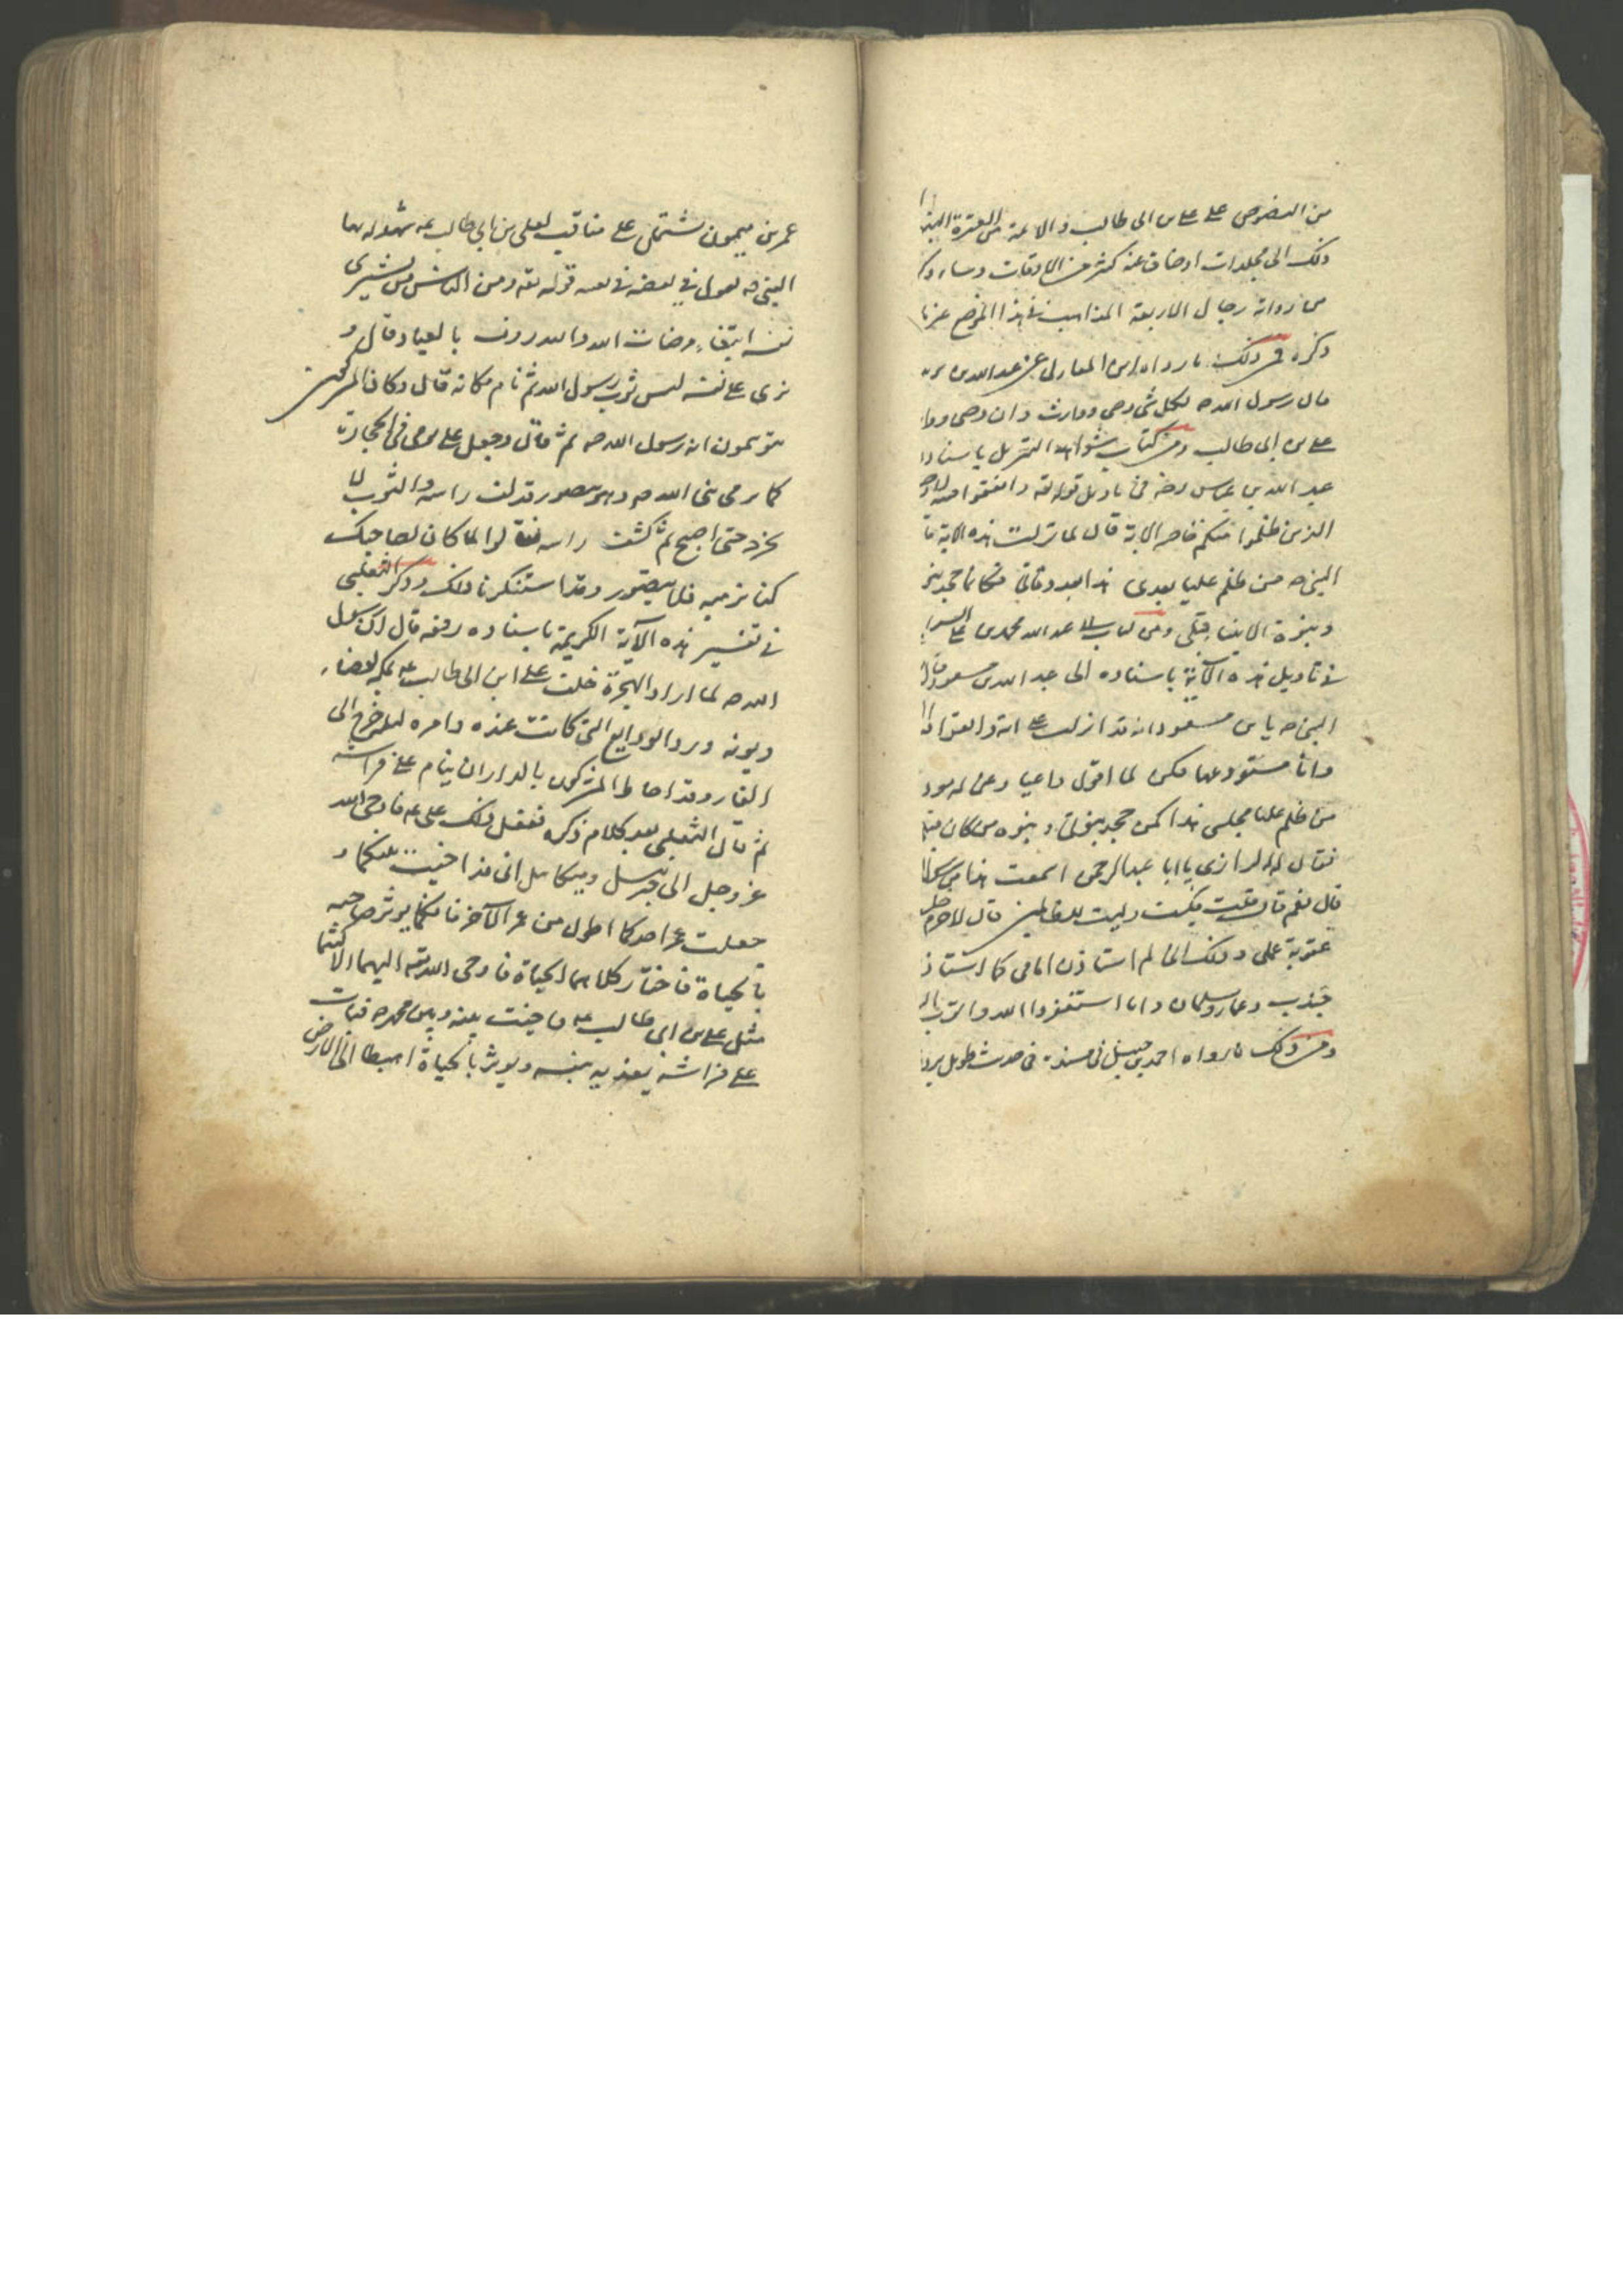 من النصوص على على بن ابى طالب والائمة من العترة
ذلك الى مجلدات اوضاق عنه كثير من الاوقات
من رواية رجال الاربعة المذاهب فى هذا الموضع
ذكره فمن ذلك ما رواه ابن المغازلى عن عبد الله بن
قال رسول الله ص لكل نبى وصى ووارث وان وصى
على بن ابى طالب ومن كتاب شواهد التنزيل باسناد
عبد الله بن عباس رضه فى تاويل قوله تعه واتقوا فتنة لا
الذين ظلموا منكم خاصة الاية قال لما نزلت هذه الاية
النبى ص من ظلم عليا مقعدى هذا بعد وفاتى فكانما جحد
ونبوة الانبياء قبلى ومن كتاب عبد الله محمد بن على السراج
فى تاويل هذه الآية باسناده الى عبد الله بن مسعود
النبى ص يا بن مسعود انه قد انزلت على اية واتقوا
وانا مستودعها فكن لما اقول واعيا وعنى له
من ظلم عليا مجلسى هذا كمن جحد نبوتى ونبوة من كان
فقال له الرازى يا ابا عبد الرحمن اسمعت هذا من
قال نعم قال قلت فكيف وليت للظالمين قال لاجرم
عقوبة عملى وذلك انى لم استاذن امامى كما استاذن
جندب وعمار وسلمان وانا استغفر الله واتوب
ومن ذلك ما رواه احمد بن حنبل فى مسنده فى حديث طويل
عمر بن ميمون يشتمل على مناقب لعلى بن ابى طالب عه شهد له بها
النبى ص يقول فى بعضه قوله تعه ومن الناس من يشرى
نفسه ابتغاء مرضات الله والله رؤف بالعباد قال و
شرى على نفسه لبس ثوب رسول الله ثم نام مكانه قال وكان المشركون
يتوهمون انه رسول الله ص ثم قال وجعل على يرمى فى الحجارة
كما يرمى نبى الله ص وهو يتضور قد لف راسه والثوب لا
يخرجه حتى اصبح ثم كشف راسه فقالوا لما كان لصاحبك
كنا نرميه فلا يتضور وقد استنكرنا ذلك وذكر الثعلبى
فى تفسير هذه الآية الكريمة باسناده رفعه قال ان رسول
الله ص لما اراد الهجرة خلف على ابن ابى طالب عه بمكة لقضاء
ديونه ورد الودايع التى كانت عنده وامره ليلة خرج الى
الغار وقد احاط المشركون بالدار ان ينام على فراشه
ثم قال الثعلبى بعد كلام ذكره ففعل ذلك على عه فاوحى الله
عز وجل الى جبرئيل وميكائيل انى قد اخيت بينكما و
جعلت عمر احدكما اطول من عمر الآخر فايكما يؤثر صاحبه
بالحياة فاختار كلاهما الحياة فاوحى الله تعه اليهما الا كنتما
مثل على بن ابى طالب عه اخيت بينه وبين محمد ص فبات
على فراشه يفديه بنفسه ويؤثر بالحياة اهبطا الى الارض